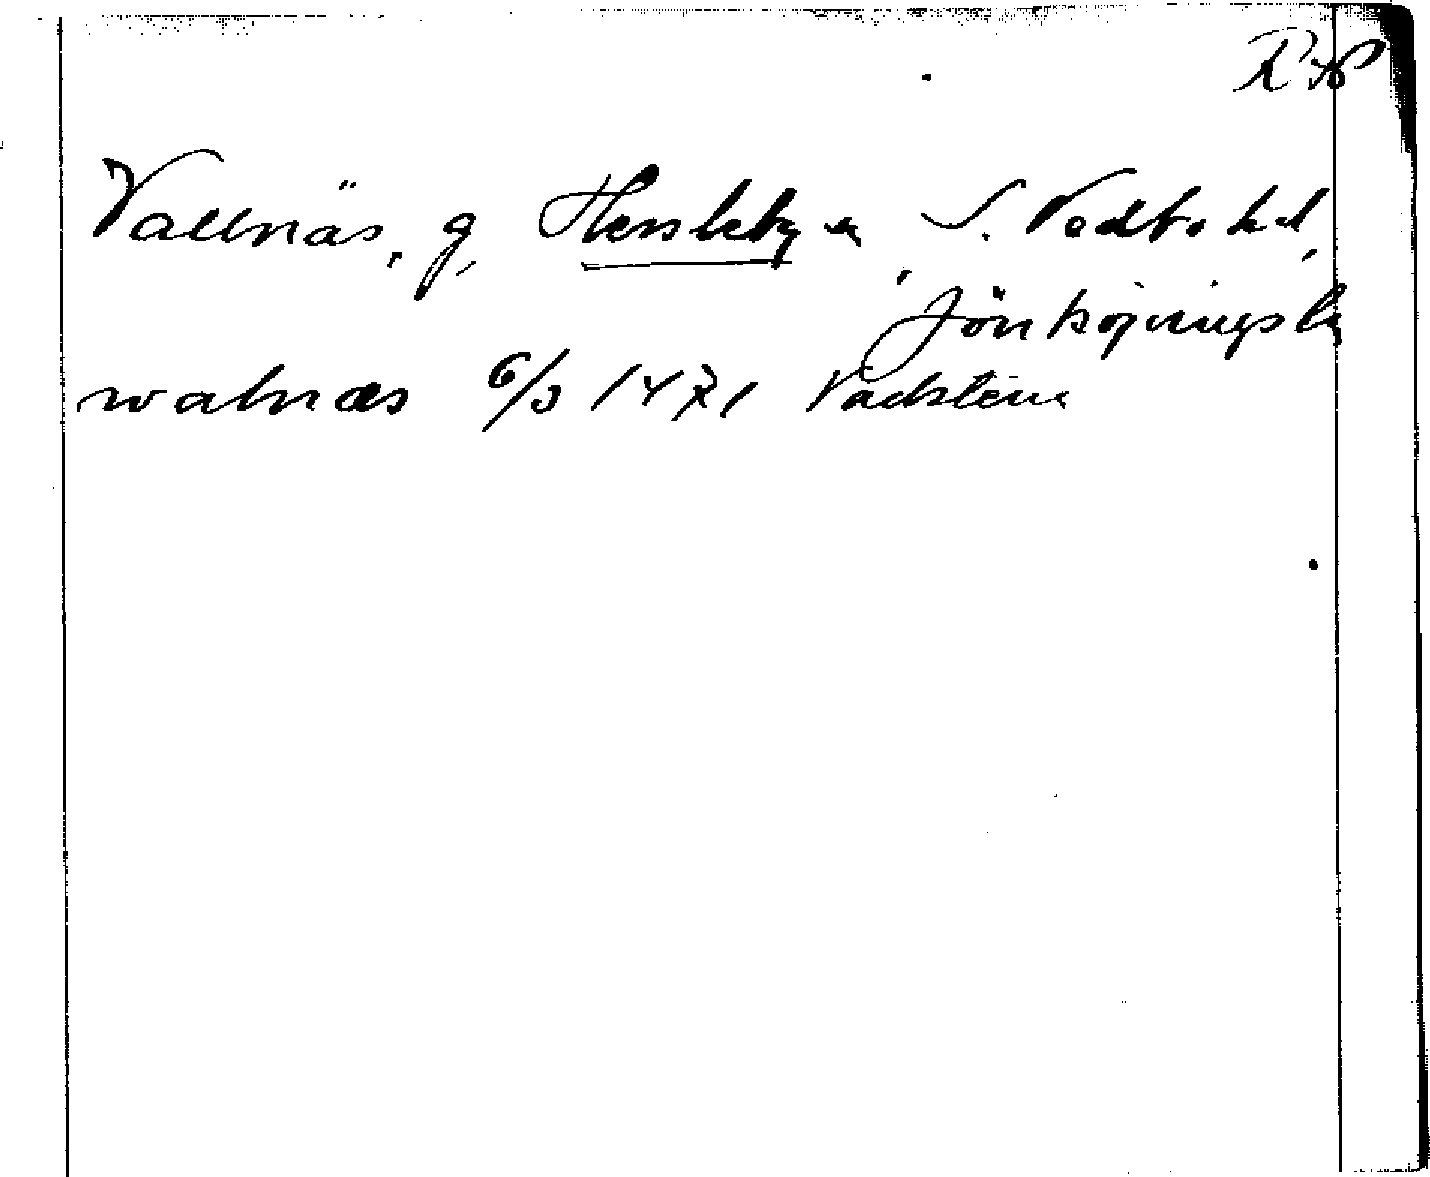 Vallnäs, g, Hessleby sn, S. Vedbo hd,
Jönköpings län
walnæs 6/3 1471 Vadstena